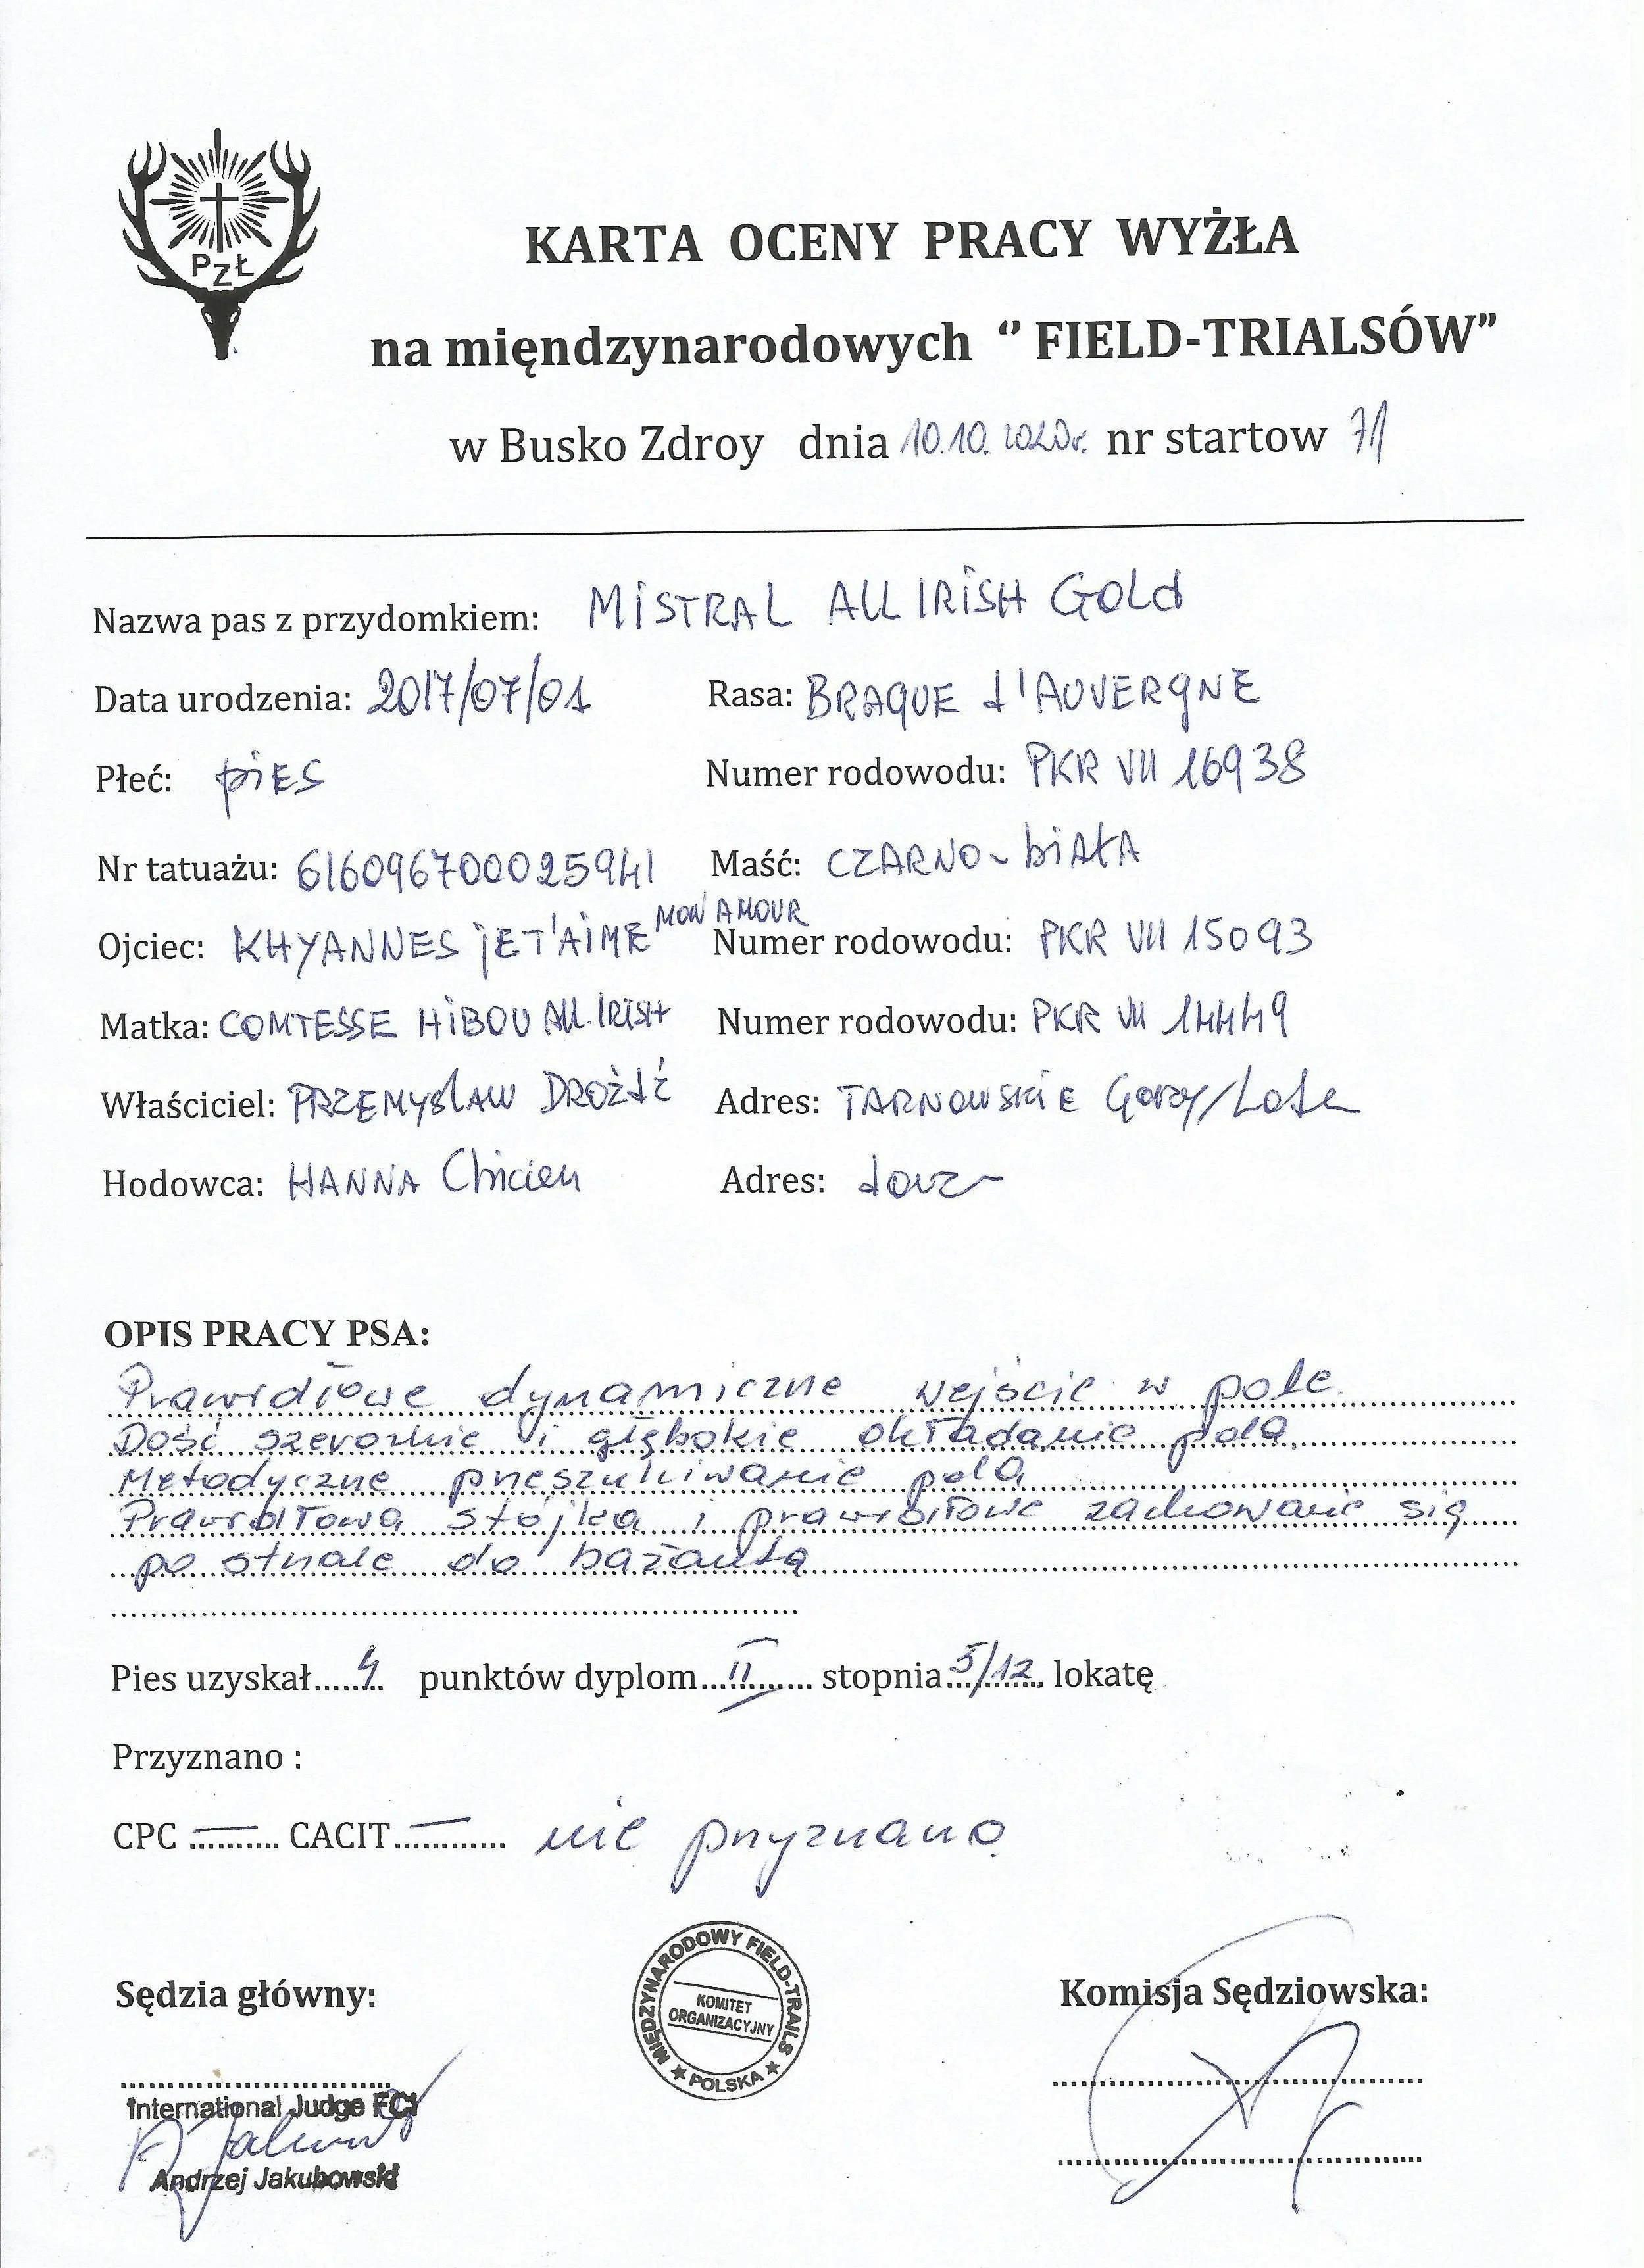 PZŁ
KARTA OCENY PRACY WYŻŁA
na mięndzynarodowych ‘’ FIELD-TRIALSÓW”
w Busko Zdroy dnia 10.10.2020r. nr startow 71
Nazwa pas z przydomkiem: MiSTRAL ALL IRiSH GOLd
Data urodzenia: 2017/07/01 Rasa: BRAQUE d'AUVERGNE
Płeć: piES Numer rodowodu: PKR VIII 16938
Nr tatuażu: 616096700025941 Maść: CZARNO-biAŁA
Ojciec: KHYANNES jET'AiME MON AMOUR Numer rodowodu: PKR VIII 15093
Matka: COMTESSE HiBOU ALL.IRISH Numer rodowodu: PKR VIII 14449
Właściciel: PRZEMYSłAW DROŻdŻ Adres: TARNOWSKiE GÓRY/
Hodowca: HANNA Adres:
OPIS PRACY PSA:
Prawidłowe dynamiczne wejście w pole.
Dość szerokie i głębokie okładanie pola.
Metodyczne przeszukiwanie pola
Prawidłowa stójka i prawidłowe zachowanie się
po strzale do bażanta
Pies uzyskał 4 punktów dyplom II stopnia 5/12 lokatę
Przyznano :
CPC — CACIT — nie przyznano
Sędzia główny: Komisja Sędziowska:
MIĘDZYNARODOWY FIELD-TRAILS
KOMITET
ORGANIZACYJNY
★ POLSKA ★
International Judge FCI
Andrzej Jakubowski